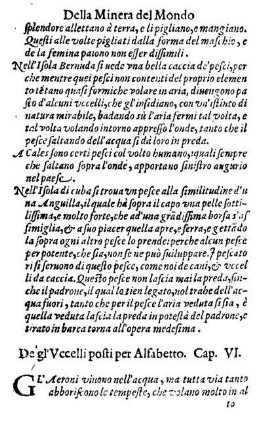 Della Minera del Mondo
splendore allettano à terra, e li pigliano, e mangiano.
Questi alle volte pigliati dalla forma del maschio, e
de la femina paiono non esser dissimili.
Nell'Isola Bernuda si uede vna bella caccia de' pesci, per
che mentre quei pesci non contenti del proprio elemen
to tẽtano quasi formiche volare in aria, diuengono pa
sto d'alcuni vccelli, che gl'insidiano, con vn'istinto di
natura mirabile, badando stà l'aria fermi tal volta, e
tal volta volando intorno appresso l'onde, tanto che il
pesce saltando dell'acqua si dà loro in preda.
A Cales sono certi pesci col volto humano, quali sempre
che saltano sopra l'onde, apportano sinistro augurio
nel paese.
Nell'Isola di cuba si troua vn pesce alla similitudine d'u
na Anguilla, il quale hà sopra il capo vna pelle sotti-
lissima, e molto forte, che ad una grãdissima borsa s'as
simiglia, & a suo piacer quella apre, e serra, e gettãdo
la sopra ogni altro pesce lo prende: perche alcun pesce
per potente, che sia, non se ne può suiluppare. I pescato
ri si seruono di questo pesce, come noi de cani, & vccel
li da caccia. Questo pesce non lascia mai la preda, fin-
che il padrone, il qual lo tien legato, nol trahe dell'ac-
qua fuori, tanto che per il pesce l'aria veduta si sia, è
quella veduta lascia la preda in potestà del padrone, e
tirato in barca torna all'opera medesima.
De gl'Vccelli posti per Alfabetto. Cap. VI.
GL'Aeroni viuono nell'acqua, ma tutta via tanto
abboriscono le tempeste, che volano molto in al
to